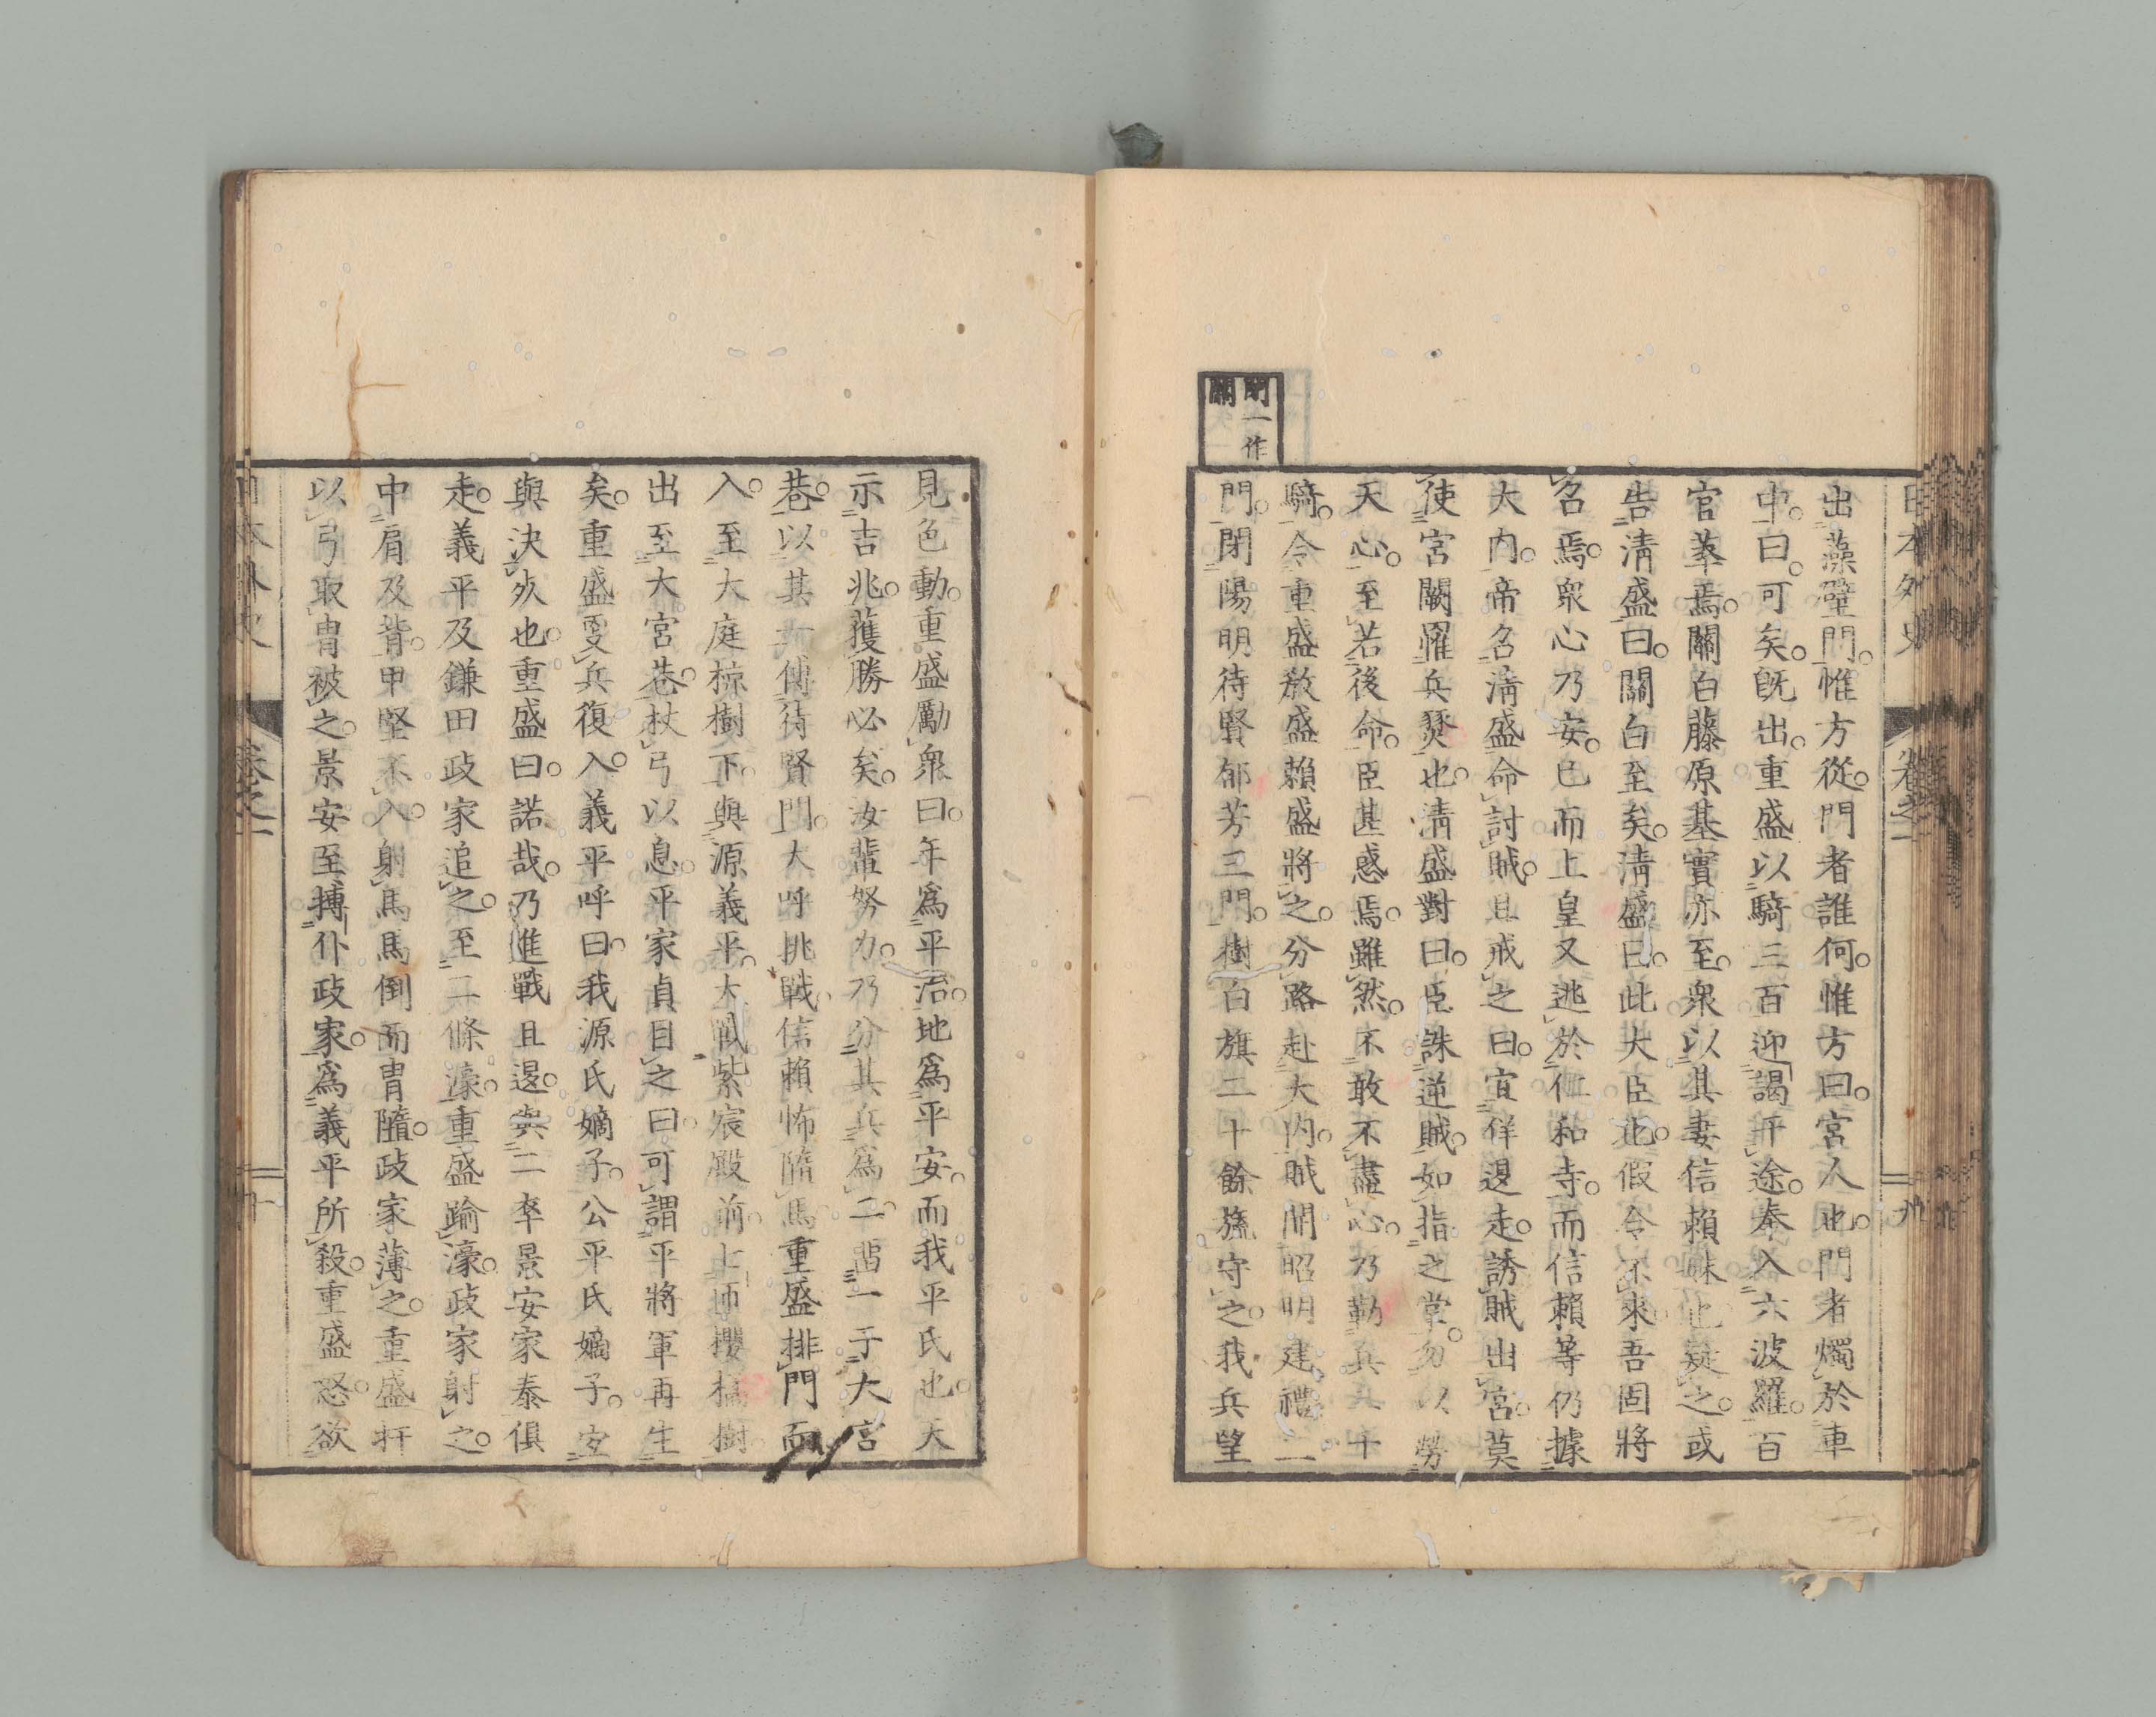 日本外史 卷之一 九
開一作
關
出藻壁門。惟方從。門者誰何。惟方曰。宮人也。門者燭於車
中。曰。可矣。既出。重盛以騎三百迎謁于途。奉入六波羅。百
官萃焉。關白藤原基實亦至。衆以其妻信賴妹也疑之。或
告淸盛曰。關白至矣。淸盛曰。此大臣也。假令不來。吾固將
召焉。衆心乃安。已而上皇又逃於仁和寺。而信賴等仍據
大内。帝召淸盛命討賊。且戒之曰。宜佯退走。誘賊出宮。莫
使宮闕罹兵燹也。淸盛對曰。臣誅逆賊。如指之掌。勿以勞
天心。至若後命。臣甚惑焉。雖然。不敢不盡心。乃勒兵三千
騎。令重盛敎盛賴盛將之。分路赴大内。賊開昭明建禮二
門。閉陽明待賢郁芳三門。樹白旗二十餘旒守之。我兵望
見色動。重盛勵衆曰。年爲平治。地爲平安。而我平氏也。天
示吉兆。獲勝必矣。汝輩努力。乃分其兵爲二。留一于大宮
巷。以其一傅待賢門。大呼挑戰。信賴怖隋馬。重盛排門而
入。至大庭椋樹下。與源義平。大戰紫宸殿前。七匝櫻橘樹
出至大宮巷。杖弓以息。平家貞目之曰。可謂平將軍再生
矣。重盛更兵復入。義平呼曰。我源氏嫡子。公平氏嫡子。宜
與決死也。重盛曰。諾哉。乃進戰且退。與二卒景安家泰俱
走。義平及鎌田政家追之。至二條濠。重盛踰濠。政家射之。
中肩及背。甲堅不入。射馬。馬倒而冑隋。政家薄之。重盛扞
以弓取冑被之。景安至搏仆政家。爲義平所殺。重盛怒欲
日本外史 卷之一 十